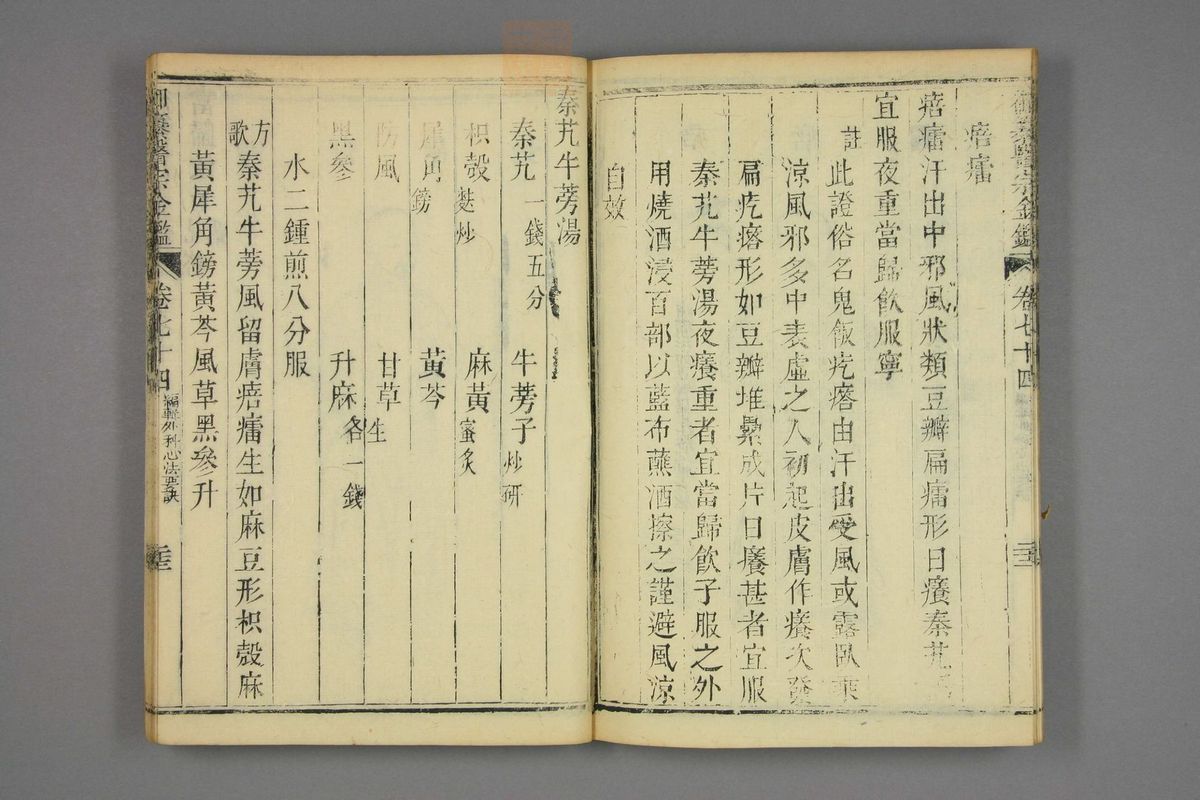 痦㿔
痦㿔汗出中邪風狀類豆瓣扁㿔形日癢秦艽
宜服夜重當歸飲服寧
註此證俗名鬼飯疙瘩由汗出受風或露臥乘
涼風邪多中表虛之人初起皮膚作癢次發
扁疙瘩形如豆瓣堆纍成片日癢甚者宜服
秦艽牛蒡湯夜癢重者宜當歸飲子服之外
用燒酒浸百部以藍布蘸酒擦之謹避風涼
自效
卷七十四
秦艽牛蒡湯
秦艽一錢五分 牛蒡子炒研
枳殼麩炒 麻黃蜜炙
犀角鎊 黃芩
防風 甘草生
黑參 升麻各一錢
水二鍾煎八分服
方歌秦艽牛蒡風留膚痦㿔生如麻豆形枳殼麻
黃犀角鎊黃芩風草黑參升
御纂醫宗金鑑 卷七十四 編輯外科心法要訣